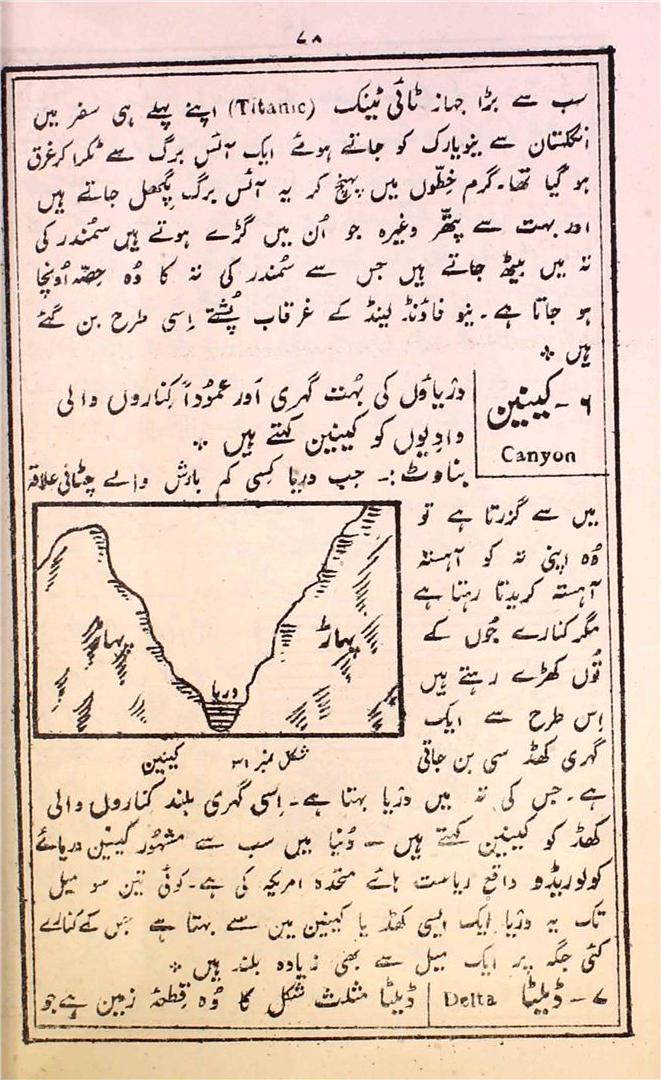 ۷۸
سب سے بڑا جہاز ٹائی ٹینک (Titanic) اپنے پہلے ہی سفر میں
انگلستان سے نیویارک کو جاتے ہوئے ایک آئس برگ سے ٹکرا کر غرق
ہو گیا تھا۔ گرم خِطّوں میں پہنچ کر یہ آئس برگ پگھل جاتے ہیں
اور بہت سے پتھّر وغیرہ جو اُن میں گڑے ہوتے ہیں سمندر کی
تہ میں بیٹھ جاتے ہیں جس سے سمُندر کی تہ کا وُہ حِصّہ اُونچا
ہو جاتا ہے۔ نیو فاؤنڈ لینڈ کے غرقاب پُشتے اِسی طرح بن گئے
ہیں ÷
۶۔ کینین
Canyon
دریاؤں کی بہُت گہری اَور عموُداً کناروں والی
وادیوں کو کینین کہتے ہیں ÷
بناوٹ :۔ جب دریا کِسی کم بارش والے چٹانی علاقہ
میں سے گزرتا ہے تو
وُہ اپنی تہ کو آہستہ
آہستہ کریدتا رہتا ہے
مگر کنارے جُوں کے
تُوں کھڑے رہتے ہیں
اِس طرح سے ایک
گہری کھڈ سی بن جاتی
پہاڑ
پہاڑ
دریا
شکل نمبر ۳۱ کینین
ہے۔ جس کی تہ میں دریا بہتا ہے۔ اِسی گہری بلند کناروں والی
کھڈ کو کینین کہتے ہیں ۔ دُنیا میں سب سے مشہُور کینین دریائے
کولوریڈو واقع ریاست ہائے متحّدہ امریکہ کی ہے۔ کوئی تین سو میل
تک یہ دریا ایک ایسی کھڈ یا کینین میں سے بہتا ہے جس کے کنارے
کئی جگہ پر ایک میل سے بھی زیادہ بلند ہیں ÷
۷۔ ڈیلٹا Delta | ڈیلٹا مثلث شکل کا وُہ قِطعۂ زمین ہے جو